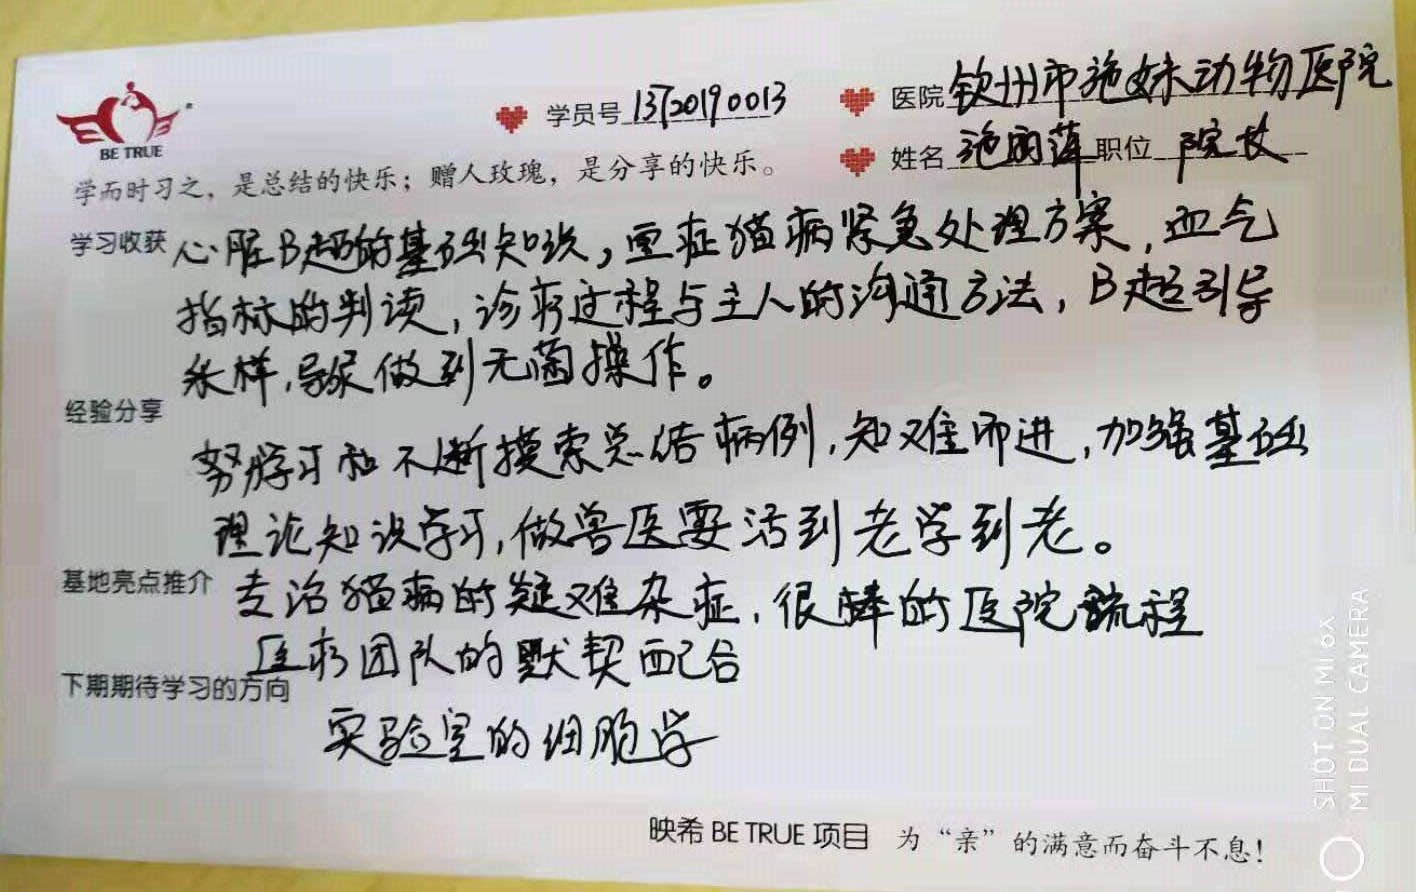 BE TRUE
学员号 13720190013
医院 钦州市施妹动物医院
姓名 施丽萍 职位 院长
学而时习之，是总结的快乐；赠人玫瑰，是分享的快乐。
学习收获 心脏B超的基础知识，重症猫病紧急处理方案，血气
指标的判读，诊疗过程与主人的沟通方法，B超引导
采样，导尿做到无菌操作。
经验分享
努力学习和不断摸索总结病例，知难而进，加强基础
理论知识学习，做兽医要活到老学到老。
基地亮点推介 专治猫病的疑难杂症，很棒的医院流程
医疗团队的默契配合
下期期待学习的方向
实验室的细胞学
映希 BE TRUE 项目 为“亲”的满意而奋斗不息！
SHOT ON MI 6X
MI DUAL CAMERA